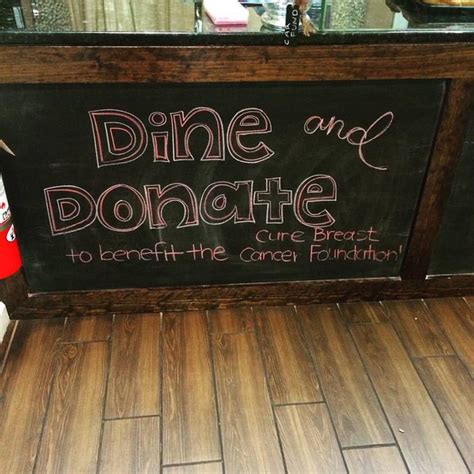 Dine and
Donate
Cure Breast
to benefit the Cancer Foundation!